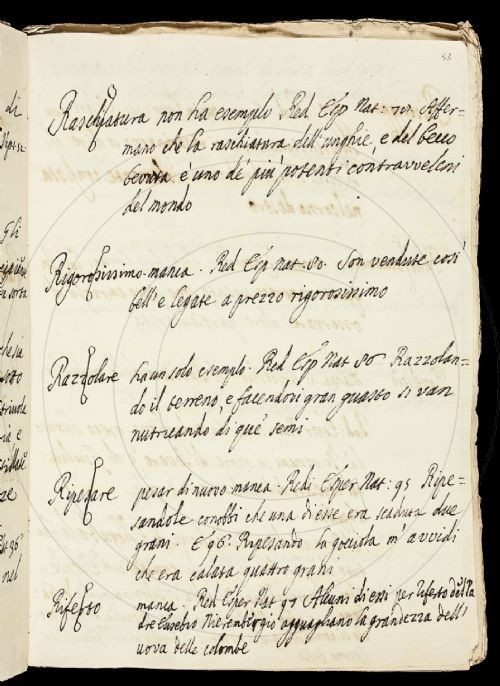 53
Raschiatura non ha esempio Red Esp Nat: 70. Affer=
mano che la raschiatura dell'unghie, e del becco
bevuta è uno de' più potenti contravveleni
del mondo
Rigorosissimo manca. Red Esp Nat. 80. Son vendute così
bell'e legate a prezzo rigorosissimo
Razzolare ha un solo esempio. Red Esp Nat 86. Razzolan=
do il terreno, e facendovi gran guasto si van
nutricando di que' semi
Ripesare pesar di nuovo manca. Redi Esper Nat: 95 Ripe=
sandole conobbi che una di esse era scaduta due
grani. E 96. Ripesando la gocciola m'avvidi
che era calata quattro grani
Riferto manca. Red Esper Nat 97 Alcuni di essi per riferto del Pa
dre Eusebio Nierembergio agguagliano la grandezza dell'
uova delle colombe
di
Gli
e
nel